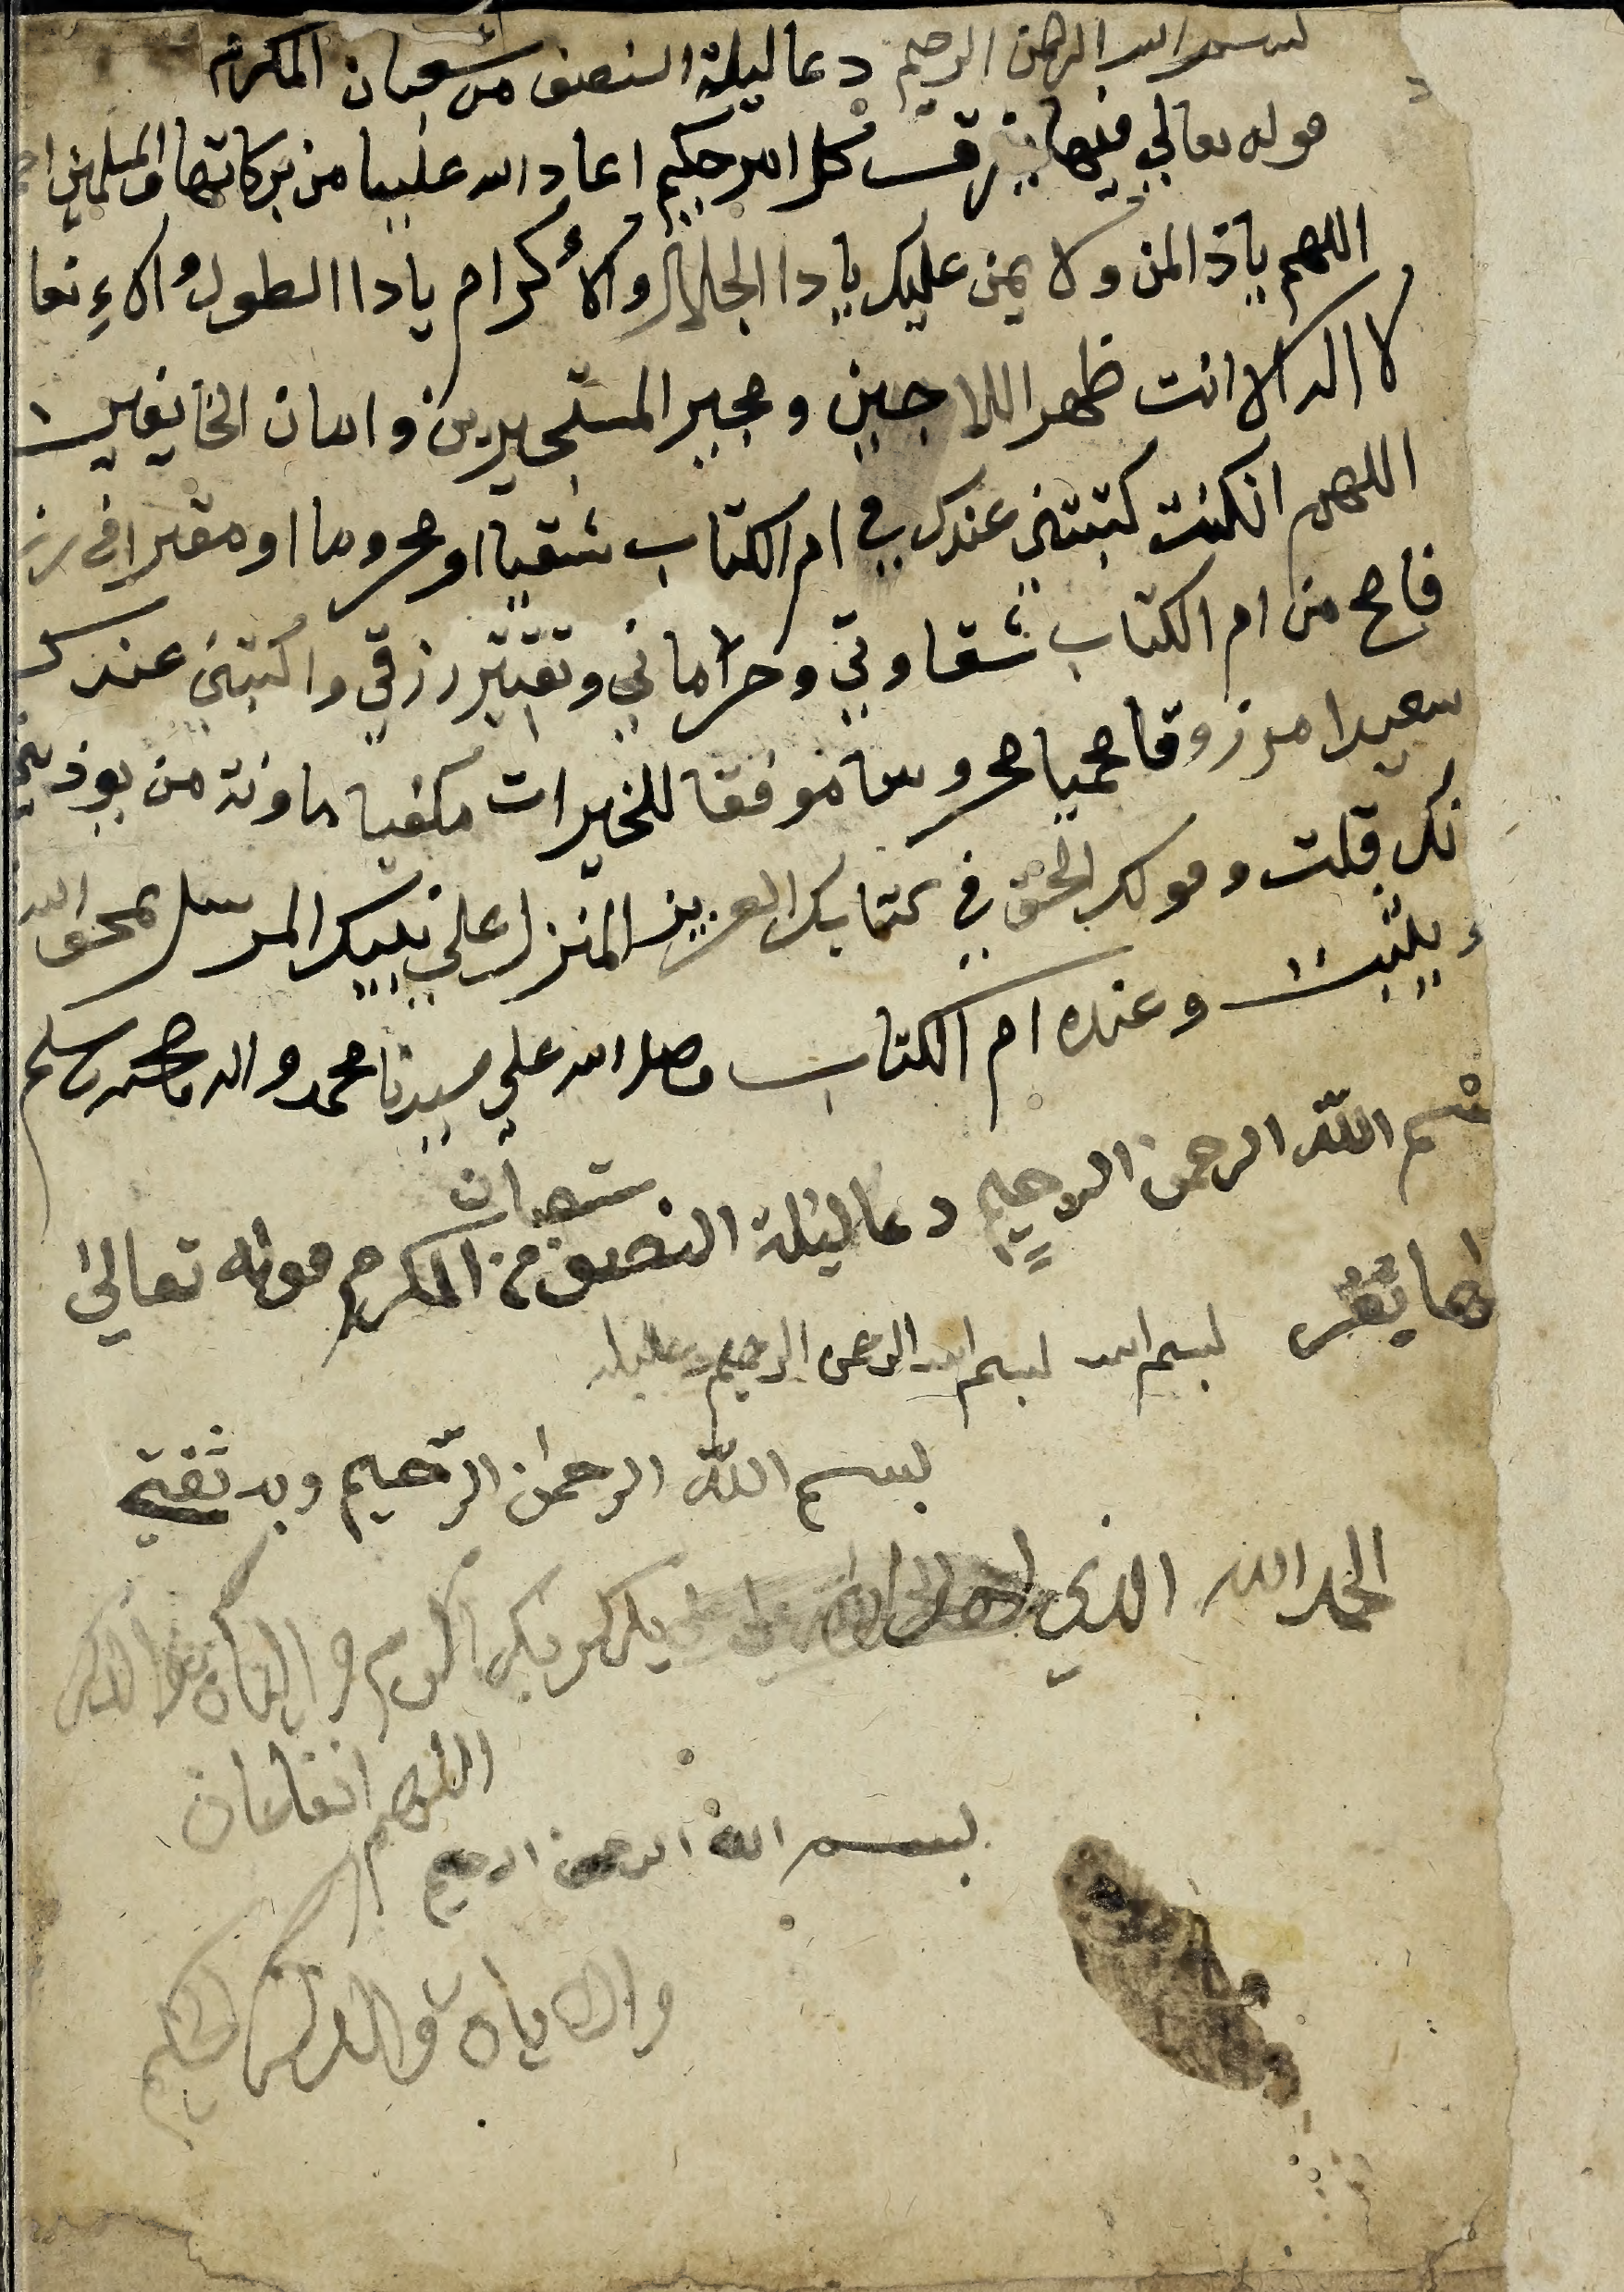 بسم الله الرحمن الرحيم دعا ليلة النصف من شعبان المكرم
قوله تعالي فيها يفرق كل امر حكيم اعاد الله علينا من بركاتها والمسلمين
اللهم ياذ المن ولا يمن عليك يا دا الجلال والأكرام يا دا الطول
لا اله الا انت ظهر اللاجين ومجير المستجيرين وامان الخايفين
اللهم انكنت كتبتني عندك في ام الكتاب شقيا او محروما او مقترا في
فامح من ام الكتاب شقاوتي وحرماني وتقتير رزقي واكتبني عندك
سعيدا مرزوقا محميا محروسا موفقا للخيرات مكفيا
نك قلت وقولك الحق في كتابك العزيز المنزل علي نبيك المرسل يمحو الله
ويثبت وعنده ام الكتاب وصلى الله علي سيدنا محمد واله وصحبه وسلم
بسم الله الرحمن الرحيم دعا ليلة النصف من المكرم قوله تعالى
شعبان
بسم الله بسم الله الرحمن الرحيم
بسم الله الرحمن الرحيم وبه ثقتي
الحمد الله الذي
اللهم
بسم الله الرحمن الرحيم